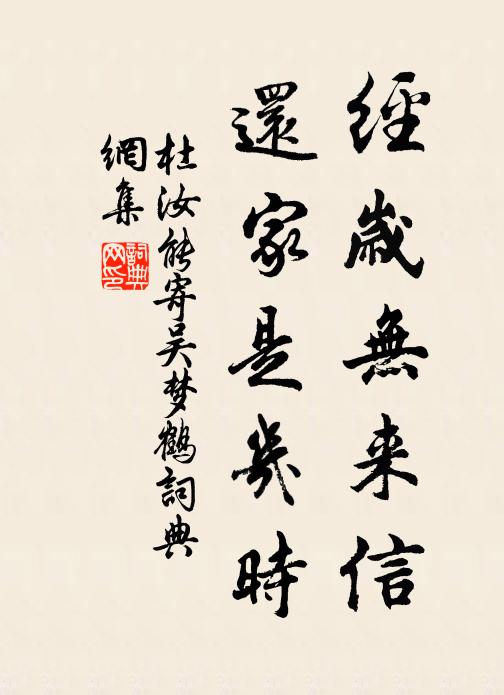 經歲無来信
還家是幾時
杜汝能寄吴梦鶴詞典
網集
詞典网印